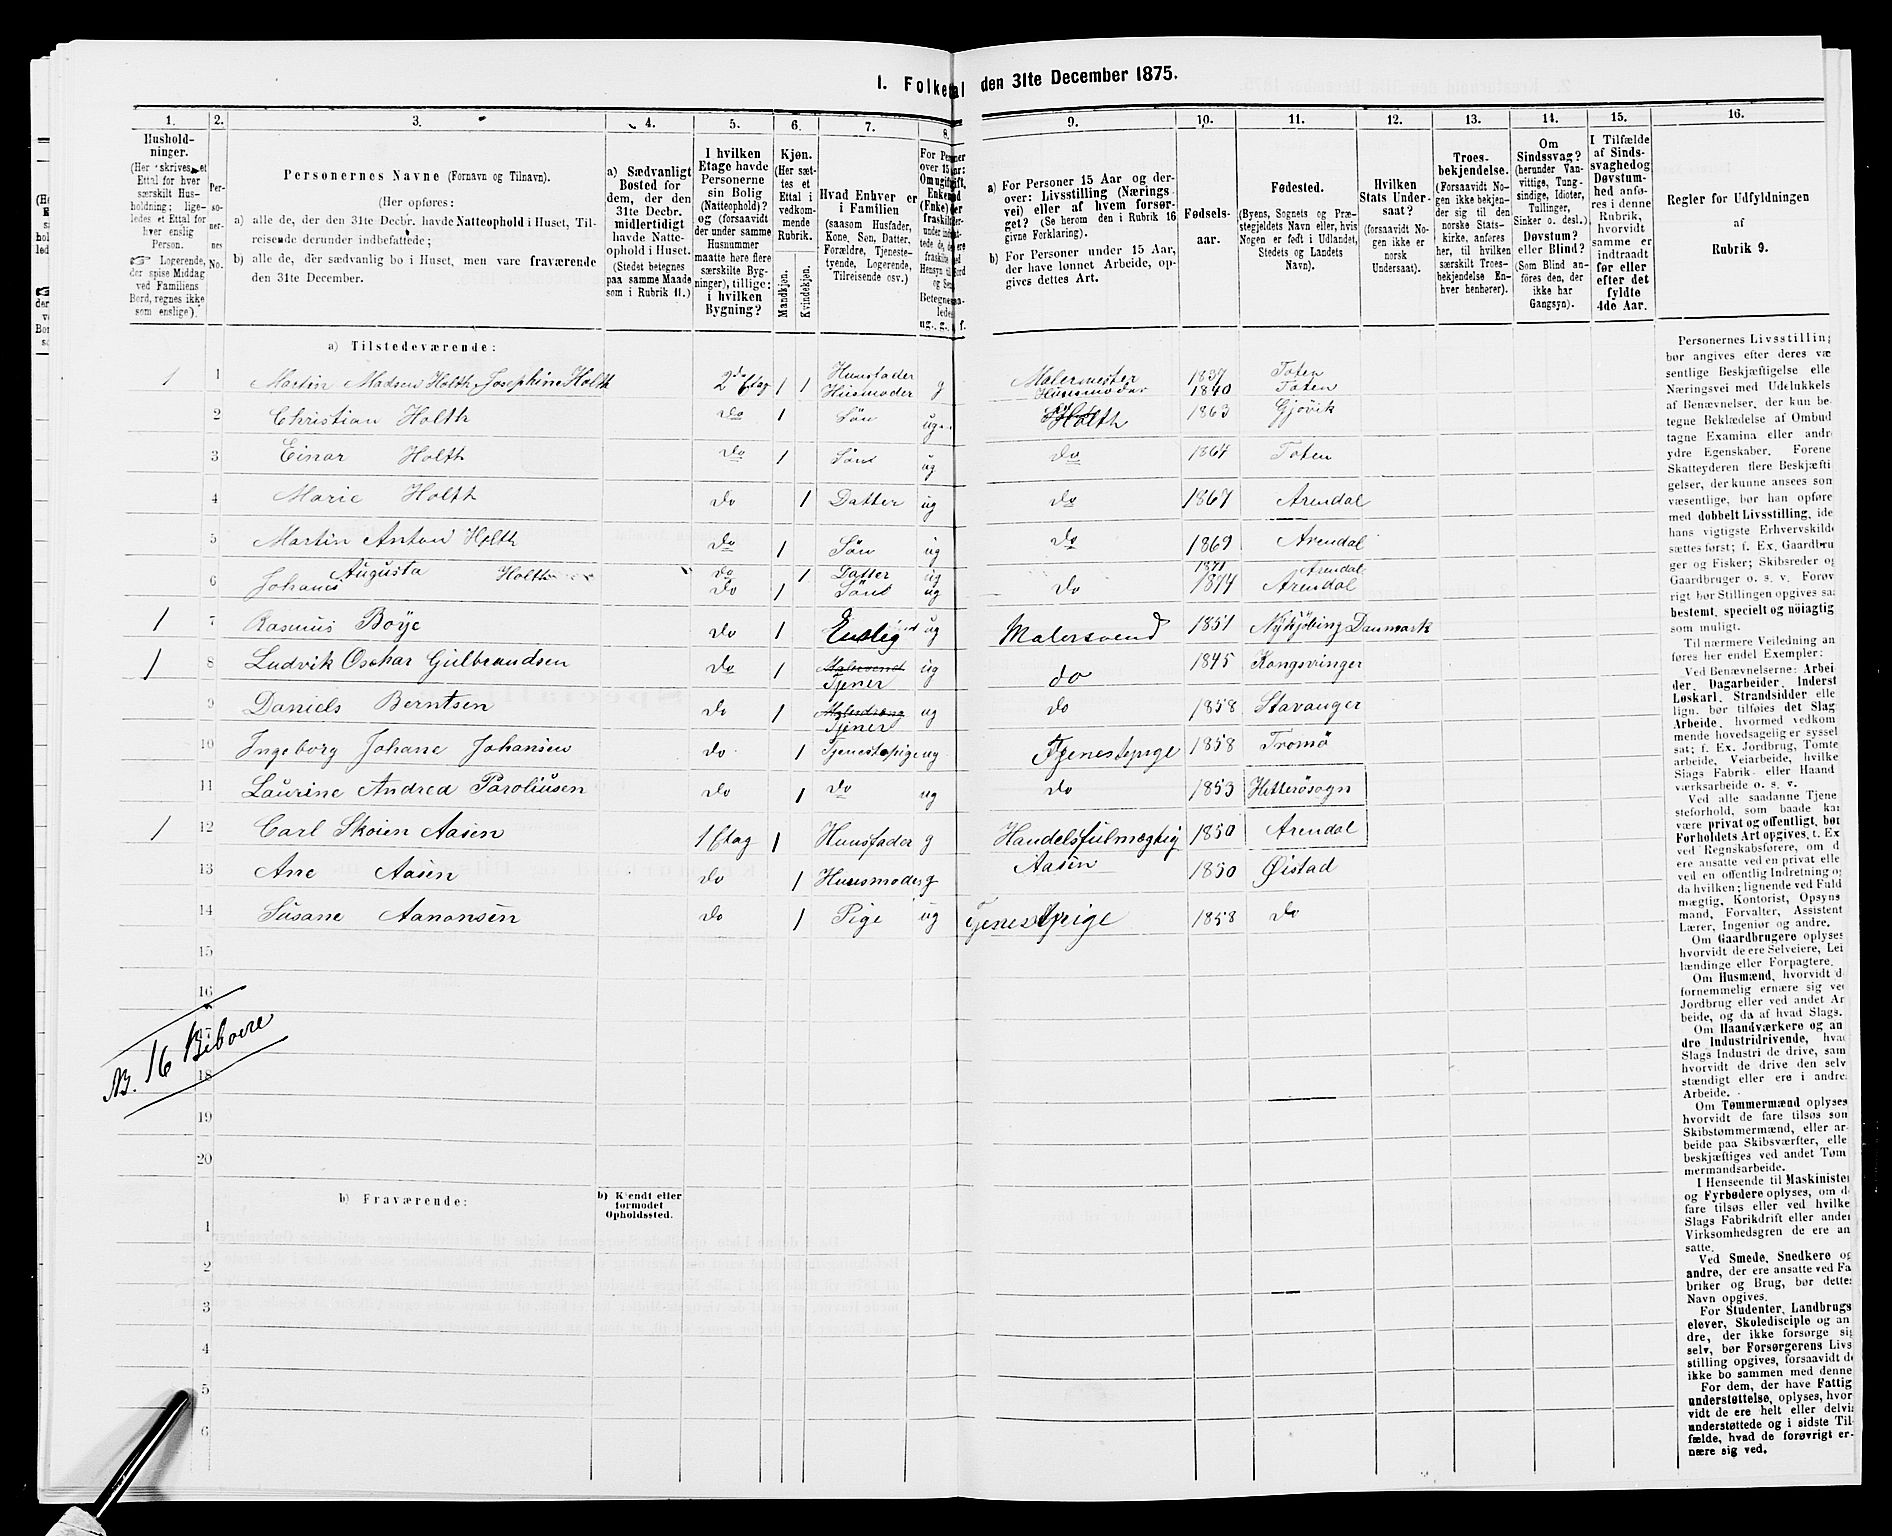 I. Folketal den 31te December 1875.
1. 2. 3. 4. 5. 6. 7. 8. 9. 10. 11. 12. 13. 14. 15. 16.
Hushold-
ninger.
(Her skrives et
Ettal for hver
særskilt Hus-
holdning; lige-
ledes et Ettal for
hver enslig
Person.
☞ Logerende,
der spise Middag
ved Familiens
Bord, regnes ikke
som enslige).
Per-
so-
ner-
nes
No.
Personernes Navne (Fornavn og Tilnavn).
(Her opføres:
a) alle de, der den 31te Decbr. havde Natteophold i Huset, Til-
reisende derunder indbefattede;
b) alle de, der sædvanlig bo i Huset, men vare fraværende
den 31te December.
a) Sædvanligt
Bosted for
dem, der den
31te Decbr.
midlertidigt
havde Natte-
ophold i Huset.
(Stedet betegnes
paa samme Maade
som i Rubrik 11.)
I hvilken
Etage havde
Personerne
sin Bolig
(Natteophold)?
og (forsaavidt
der under samme
Husnummer
maatte høre flere
særskilte Byg-
ninger), tillige:
i hvilken
Bygning?
Kjøn.
(Her sæt-
tes et
Ettal i
vedkom-
mende
Rubrik.
Mandkjøn.
Kvindekjøn.
Hvad Enhver er
i Familien
(saasom Husfader,
Kone, Søn, Datter,
Forældre, Tjeneste-
tyende, Logerende,
Tilreisende osv.)
a) For Personer 15 Aar og der-
over: Livsstilling (Nærings-
vei) eller af hvem forsør-
get? (Se herom den i Rubrik 16
givne Forklaring).
b) For Personer under 15 Aar,
der have lønnet Arbeide, op-
gives dettes Art.
Fødsels-
aar.
Fødested.
(Byens, Sognets og Præ-
stegjeldets Navn eller, hvis
Nogen er født i Udlandet,
Stedets og Landets
Navn).
Hvilken
Stats Under-
saat?
(forsaavidt No-
gen ikke er
norsk
Undersaat).
Troes-
bekjendelse.
(Forsaavidt No-
gen ikke bekjen-
der sig til den
norske Stats-
kirke, anføres
her, til hvilken
særskilt Troes-
bekjendelse En-
hver henhører).
Om
Sindssvag?
(herunder Van-
vittige, Tung-
sindige, Idioter,
Tullinger,
Sinker o. desl.)
Døvstum?
eller Blind?
(Som Blind an-
føres den, der
ikke har
Gangsyn).
I Tilfælde
af Sinds-
svaghed og
Døvstum-
hed anfø-
res i denne
Rubrik,
hvorvidt
samme er
indtraadt
før eller
efter det
fyldte
4de Aar.
Regler for Udfyldningen
af
Rubrik 9.
a) Tilstedeværende:
1 1 Martin Madsen Holth Josephine Holth 2den Etag 1 1 Huusfader Husmoder g Malermester Huusmoder 1837 1840 Toten Toten
2 Christian Holth do 1 Søn ug Holth 1863 Gjøvik
3 Einar Holth do 1 Søn ug do 1864 Toten
4 Marie Holth do 1 Datter ug do 1867 Arendal
5 Martin Anton Holth do 1 Søn ug do 1869 Arendal
Augusta do 1 Datter ug 1871 Arendal
6 Johanes Holth do 1 Søn ug do 1874 Arendal
1 7 Rasmus Böye do 1 Enslig ug Malersvend 1851 Nykjöbing Danmark
1 8 Ludvik Oschar Gulbrandsen do 1 Malersvend Tjener ug do 1845 Kongsvinger
9 Daniels Berntsen do 1 Tjener ug do 1858 Stavanger
10 Ingeborg Johane Johansen do 1 Tjenestepige ug Tjenestepige 1858 Tromö
11 Laurine Andrea Paroliusen do 1 do ug do 1853 Hitterösogn
1 12 Carl Skoien Aasen 1 Etag 1 Huusfader g Handelsfulmægtig 1850 Arendal
13 Ane Aasen do 1 Huusmoder g Aasen 1850 Øistad
14 Susane Aanonsen do 1 Pige ug Tjenestepige 1858 do
15
16
NB. 16 Beboere
18
19
20
b) Fraværende:
b) Kjendt eller
formodet
Opholdssted.
1
2
3
4
5
6
Personernes Livsstilling
bør angives efter deres væ
sentlige Beskjæftigelse elle
Næringsvei med Udelukkels
af Benævnelser, der kun be
tegne Beklædelse af Ombud
tagne Examina eller andr
ydre Egenskaber. Forene
Skatteyderen flere Beskjæfti
gelser, der kunne ansees som
væsentlige, bør han opføre
med dobbelt Livsstilling, ide
hans vigtigste Erhvervskilde
sættes først; f. Ex. Gaardbru
ger og Fisker; Skibsreder og
Gaardbruger o. s. v. Forøv
rigt bør Stillingen opgives saa
bestemt, specielt og nöiagtig
som muligt.
Til nærmere Veiledning an
føres her endel Exempler:
Ved Benævnelserne: Arbei
der, Dagarbeider, Inderst
Løskarl, Strandsidder elle
lign. bør tilføies det Slag
Arbeide, hvormed vedkom
mende hovedsagelig er syssel
sat; f. Ex. Jordbrug, Tomte
arbeide, Veiarbeide, hvilke
Slags Fabrik- eller Haand
værksarbeide o. s. v.
Ved alle saadanne Tjene
steforhold, som baade kan
være privat og offentligt, bør
Forholdets Art opgives, f. Ex
ved Regnskabsførere, om d
ere ansatte ved en privat elle
ved en offentlig Indretning og
da hvilken; lignende ved Fuld
mægtig, Kontorist, Opsyns
mand, Forvalter, Assistent
Lærer, Ingeniør og andre.
Om Gaardbrugere oplyses
hvorvidt de ere Selveiere, Lei
lændinge eller Forpagtere.
Om Husmænd, hvorvidt d
fornemmelig ernære sig ved
Jordbrug eller ved andet Ar
beide, og da af hvad Slags.
Om Haandværkere og an
dre Industridrivende, hvad
Slags Industri de drive, sam
hvorvidt de drive den selv
stændigt eller ere i andre
Arbeide.
Om Tømmermænd oplyses
hvorvidt de fare tilsøs som
Skibstømmermænd, eller ar
beide paa Skibsværfter, elle
beskjæftiges ved andet Tøm
mermandsarbeide.
I Henseende til Maskinister
og Fyrbødere oplyses, om d
fare tilsøs eller ved hvilke
Slags Fabrikdrift eller anden
Virksomhedsgren de ere an
satte.
Ved Smede, Snedkere og
andre, der ere ansatte ved Fa
briker og Brug, bør dettes
Navn opgives.
For Studenter, Landbrugs
elever, Skoledisciple og an
dre, der ikke forsørge sig
selv, bør Forsørgerens Livs
stilling opgives, forsaavidt de
ikke bo sammen med denne
For dem, der have Fattig
understøttelse, oplyses, hvor
vidt de ere helt eller delvis
understøttede og i sidste Til
fælde, hvad de forøvrigt er-
nære sig ved.